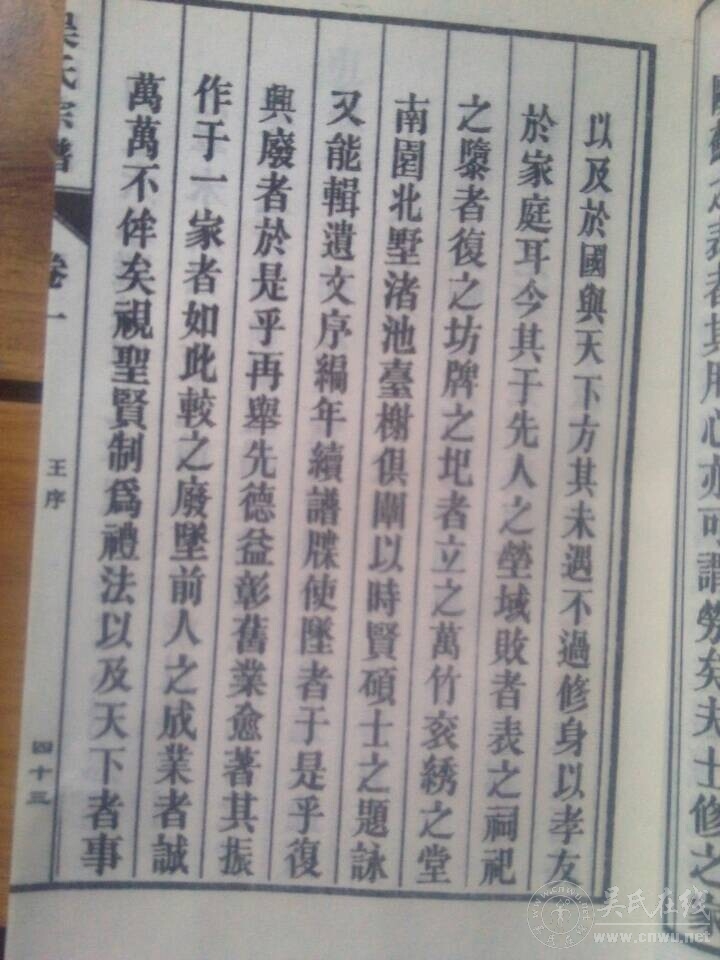 以及於國與天下方其未遇不過修身以孝友
於家庭耳今其于先人之塋域敗者表之祠祀
之隳者復之坊牌之圯者立之萬竹衮綉之堂
南園北墅渚池臺榭俱闢以時賢碩士之題詠
又能輯遺文序編年續譜牒使墜者于是乎復
興廢者於是乎再舉先德益彰舊業愈著其振
作于一家者如此較之廢墜前人之成業者誠
萬萬不侔矣視聖賢制爲禮法以及天下者事
吳氏宗譜
卷一
王序
四十三
之者其用心亦可謂勞矣夫士修之
吴氏在线
www.cnwu.net